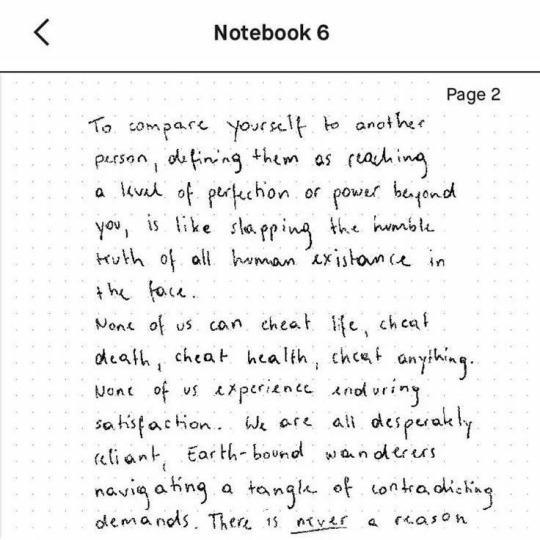 Notebook 6
Page 2
To compare yourself to another
person, defining them as reaching
a level of perfection or power beyond
you, is like slapping the humble
truth of all human existance in
the face.
None of us can cheat life, cheat
death, cheat health, cheat anything.
None of us experience enduring
satisfaction. We are all desperately
reliant, Earth-bound wanderers
navigating a tangle of contradicting
demands. There is never a reason